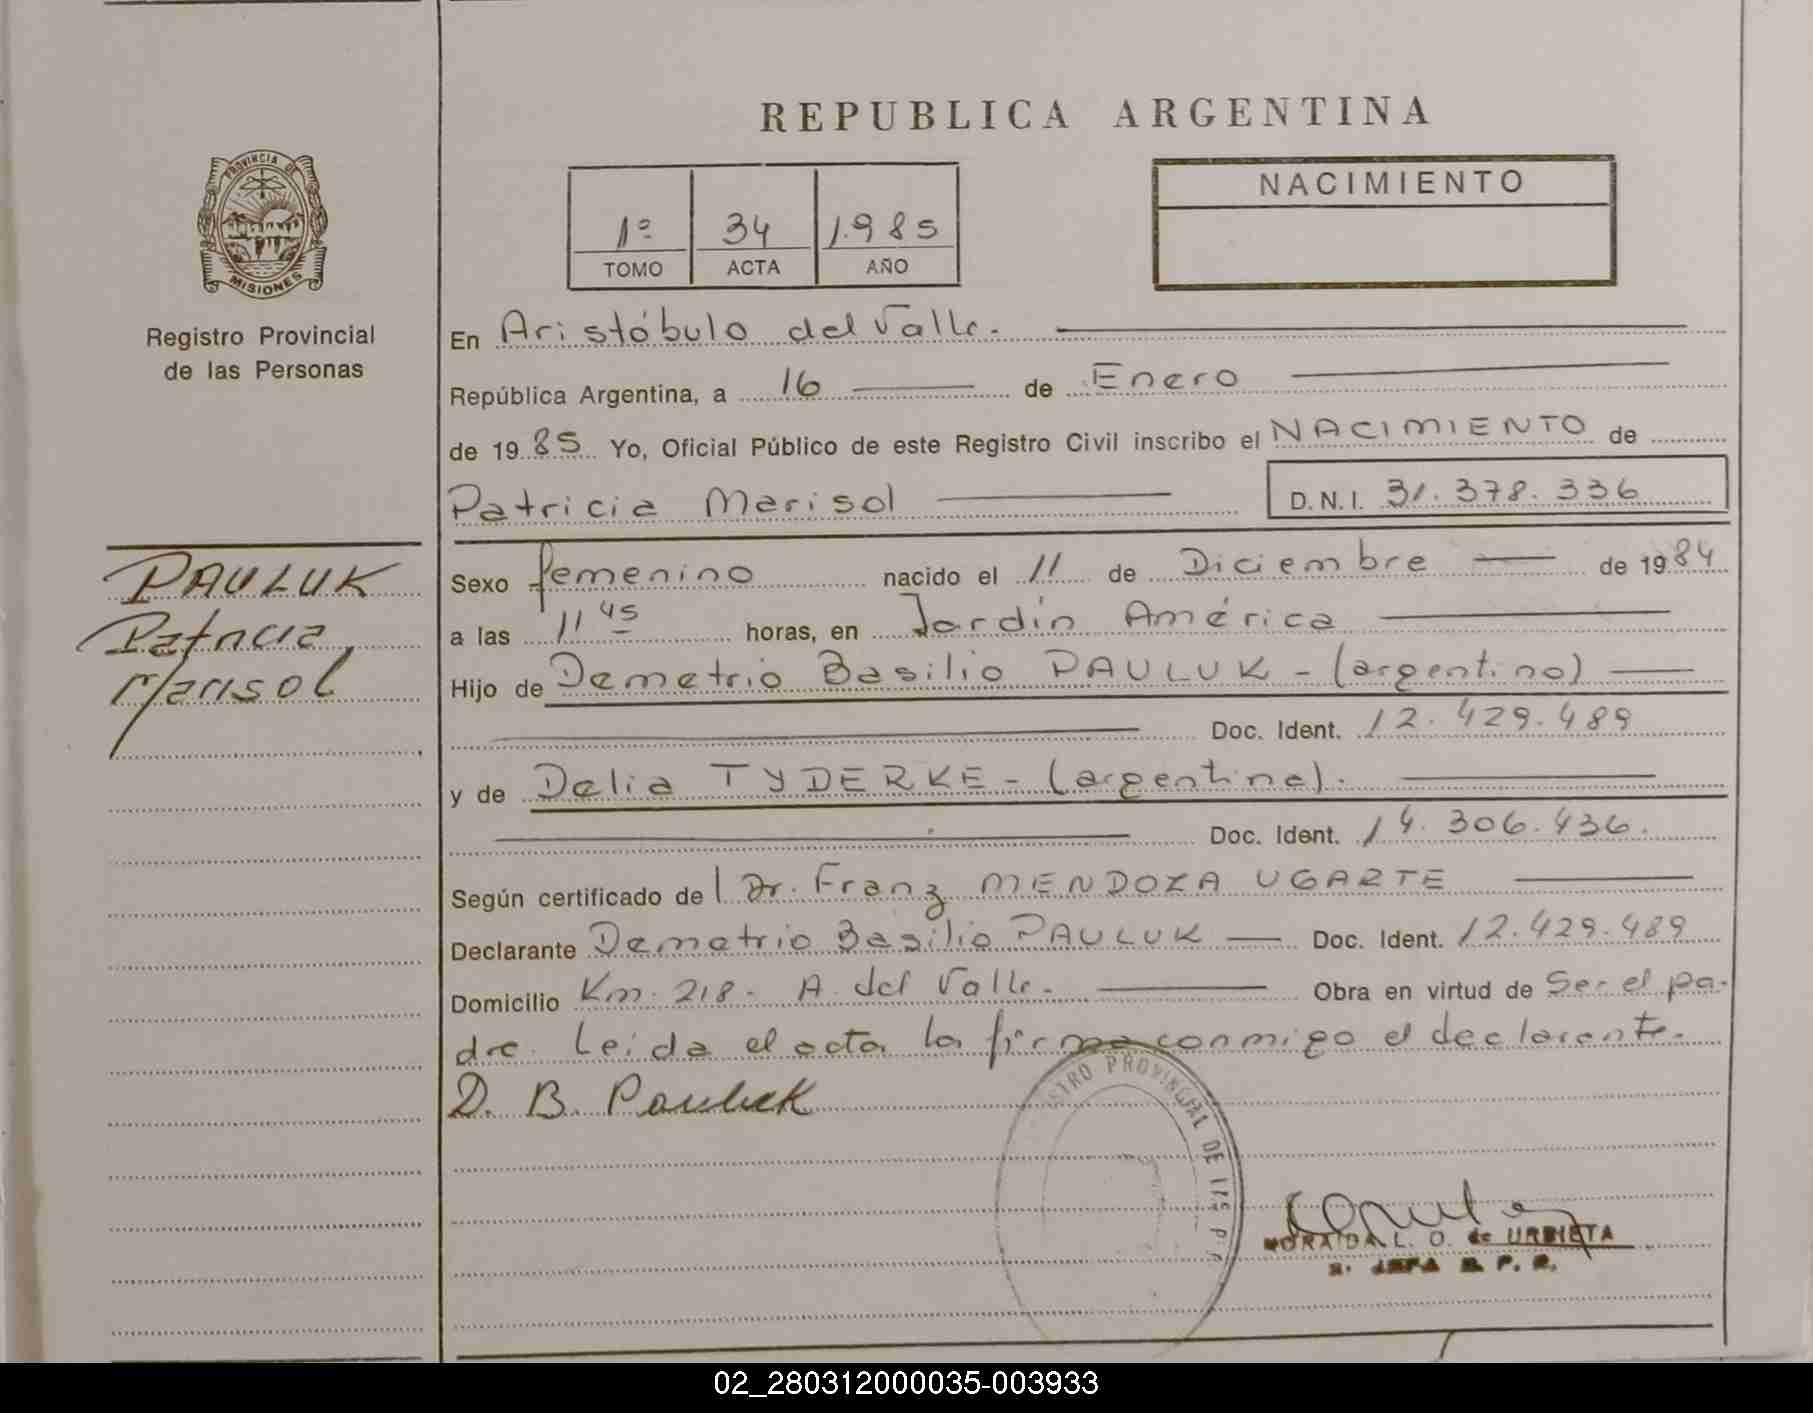 REPUBLICA ARGENTINA
PROVINCIA DE
MISIONES
Registro Provincial
de las Personas
1º 34 1.985
TOMO ACTA AÑO
NACIMIENTO
En Aristóbulo del Valle.
República Argentina, a 16 de Enero
de 1985 Yo, Oficial Público de este Registro Civil inscribo el NACIMIENTO de
Patricia Marisol D.N.I. 31.378.336
PAULUK
Patricia
Marisol
Sexo femenino nacido el 11 de Diciembre de 1984
a las 11 45 horas, en Jardín América
Hijo de Demetrio Basilio PAULUK - (argentino)
Doc. Ident. 12.429.489
y de Delia TYDERKE - (argentina).
Doc. Ident. 14.306.436.
Según certificado del Dr. Franz MENDOZA UGARTE
Declarante Demetrio Basilio PAULUK Doc. Ident. 12.429.489
Domicilio Km. 218- A. del Valle. Obra en virtud de Ser el pa-
dre. Leída el acta la firma conmigo el declarante.
D. B. Pauluk
STRO PROVINCIAL DE
L. O. de URBIETA
JEFA R. P. P.
02_280312000035-003933